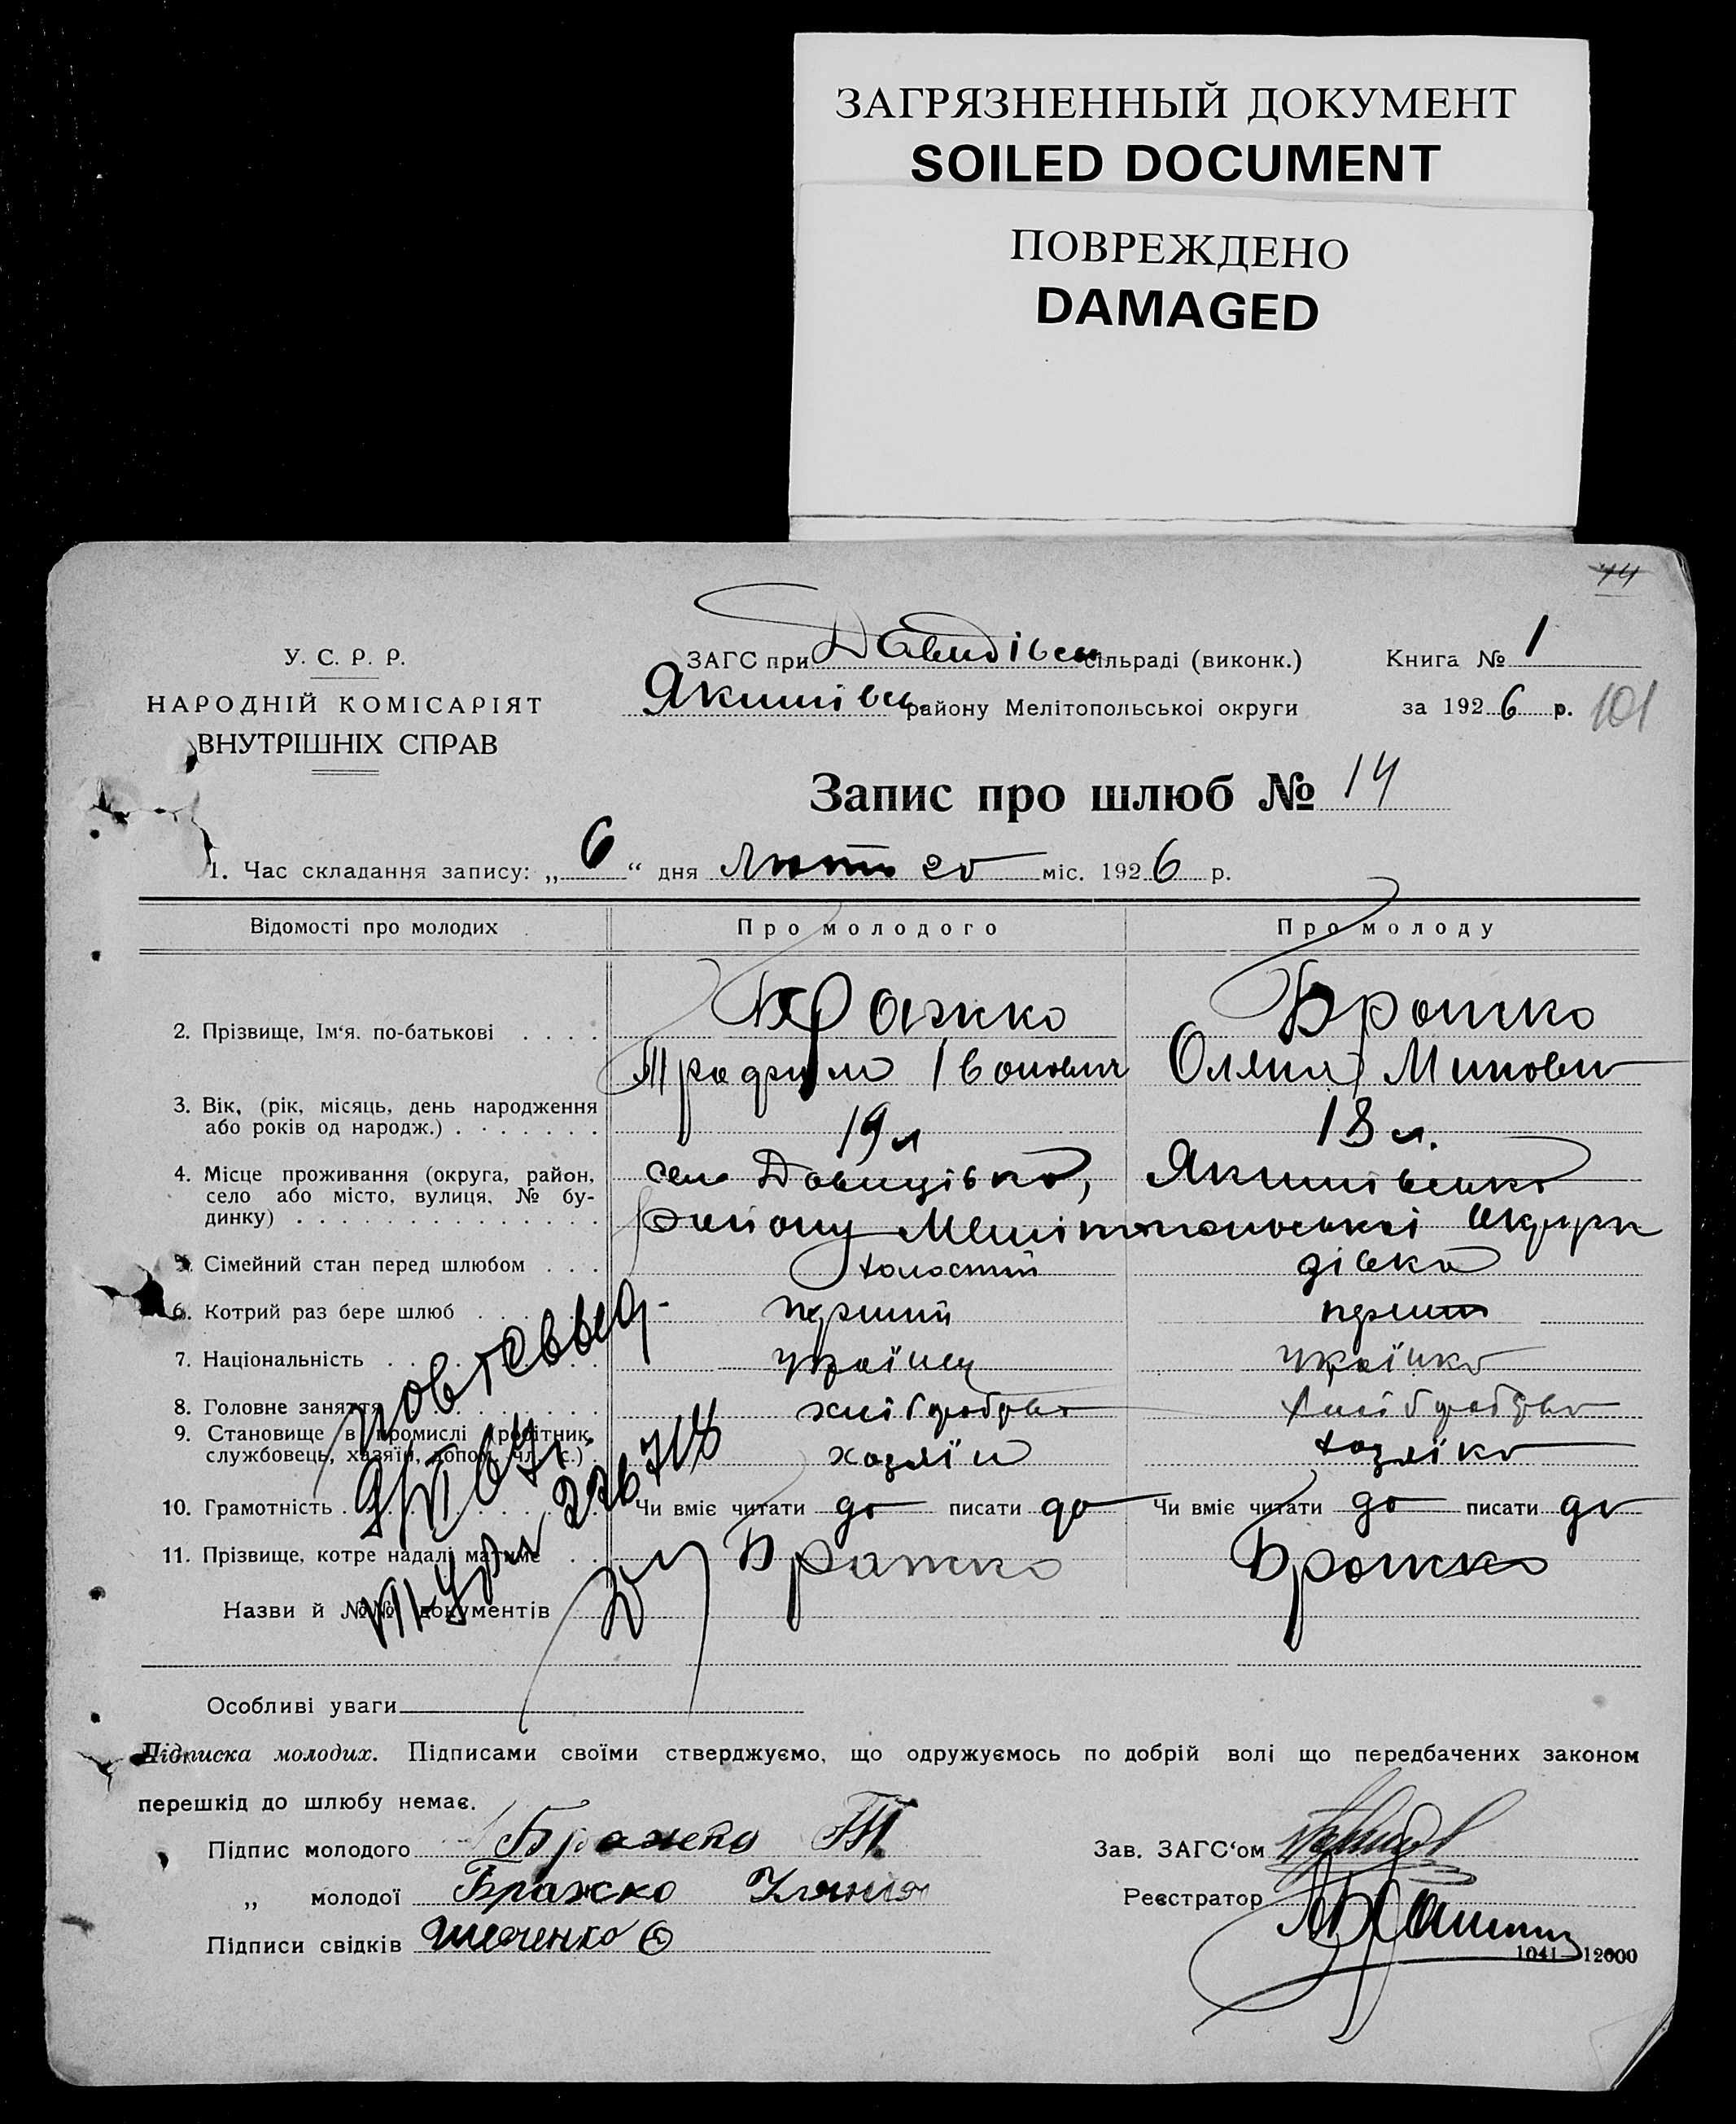 ЗАГРЯЗНЕННЫЙ ДОКУМЕНТ
SOILED DOCUMENT
ПОВРЕЖДЕНО
DAMAGED
44
У. С. Р. Р.
НАРОДНІЙ КОМІСАРІЯТ
ВНУТРІШНІХ СПРАВ
ЗАГС при Давидівськ сільраді (виконк.)
Якимівськ району Мелітопольської округи
Книга № 1
за 1926 р. 101
Запис про шлюб № 14
1. Час складання запису: „6“ дня лютого міс. 1926 р.
Відомості про молодих Про молодого Про молоду
2. Прізвище, Ім‘я. по-батькові . . . . Бражко Бражко
Трафим Іванович Оляна
3. Вік, (рік, місяць, день народження
або років од народж.) . . . . . . . 19 л 18 л.
4. Місце проживання (округа, район,
село або місто, вулиця, № бу-
динку) . . . . . . . . . . . . . .
село Давидівка, Якимівського
району Мелітопольської округи
5. Сімейний стан перед шлюбом . . . холостий дівка
6. Котрий раз бере шлюб . . . . . . перший перший
7. Національність . . . . . . . . . українець українка
8. Головне заняття . . . . . . . . хліборобство хліборобство
9. Становище в промислі (робітник,
службовець, хазяїн, допом. чл. с.) хазяїн хазяїка
10. Грамотність . . . . . . . . . . Чи вміє читати да писати да Чи вміє читати да писати да
11. Прізвище, котре надалі матиме . . Бражко Бражко
Назви й №№ документів
Особливі уваги
Підписка молодих. Підписами своїми стверджуємо, що одружуємось по добрій волі що передбачених законом
перешкід до шлюбу немає.
Підпис молодого Бражко Т.
Зав. ЗАГС‘ом
„ молодої Бражко Уляния
Реєстратор
Підписи свідків Шевченко
1041—12000